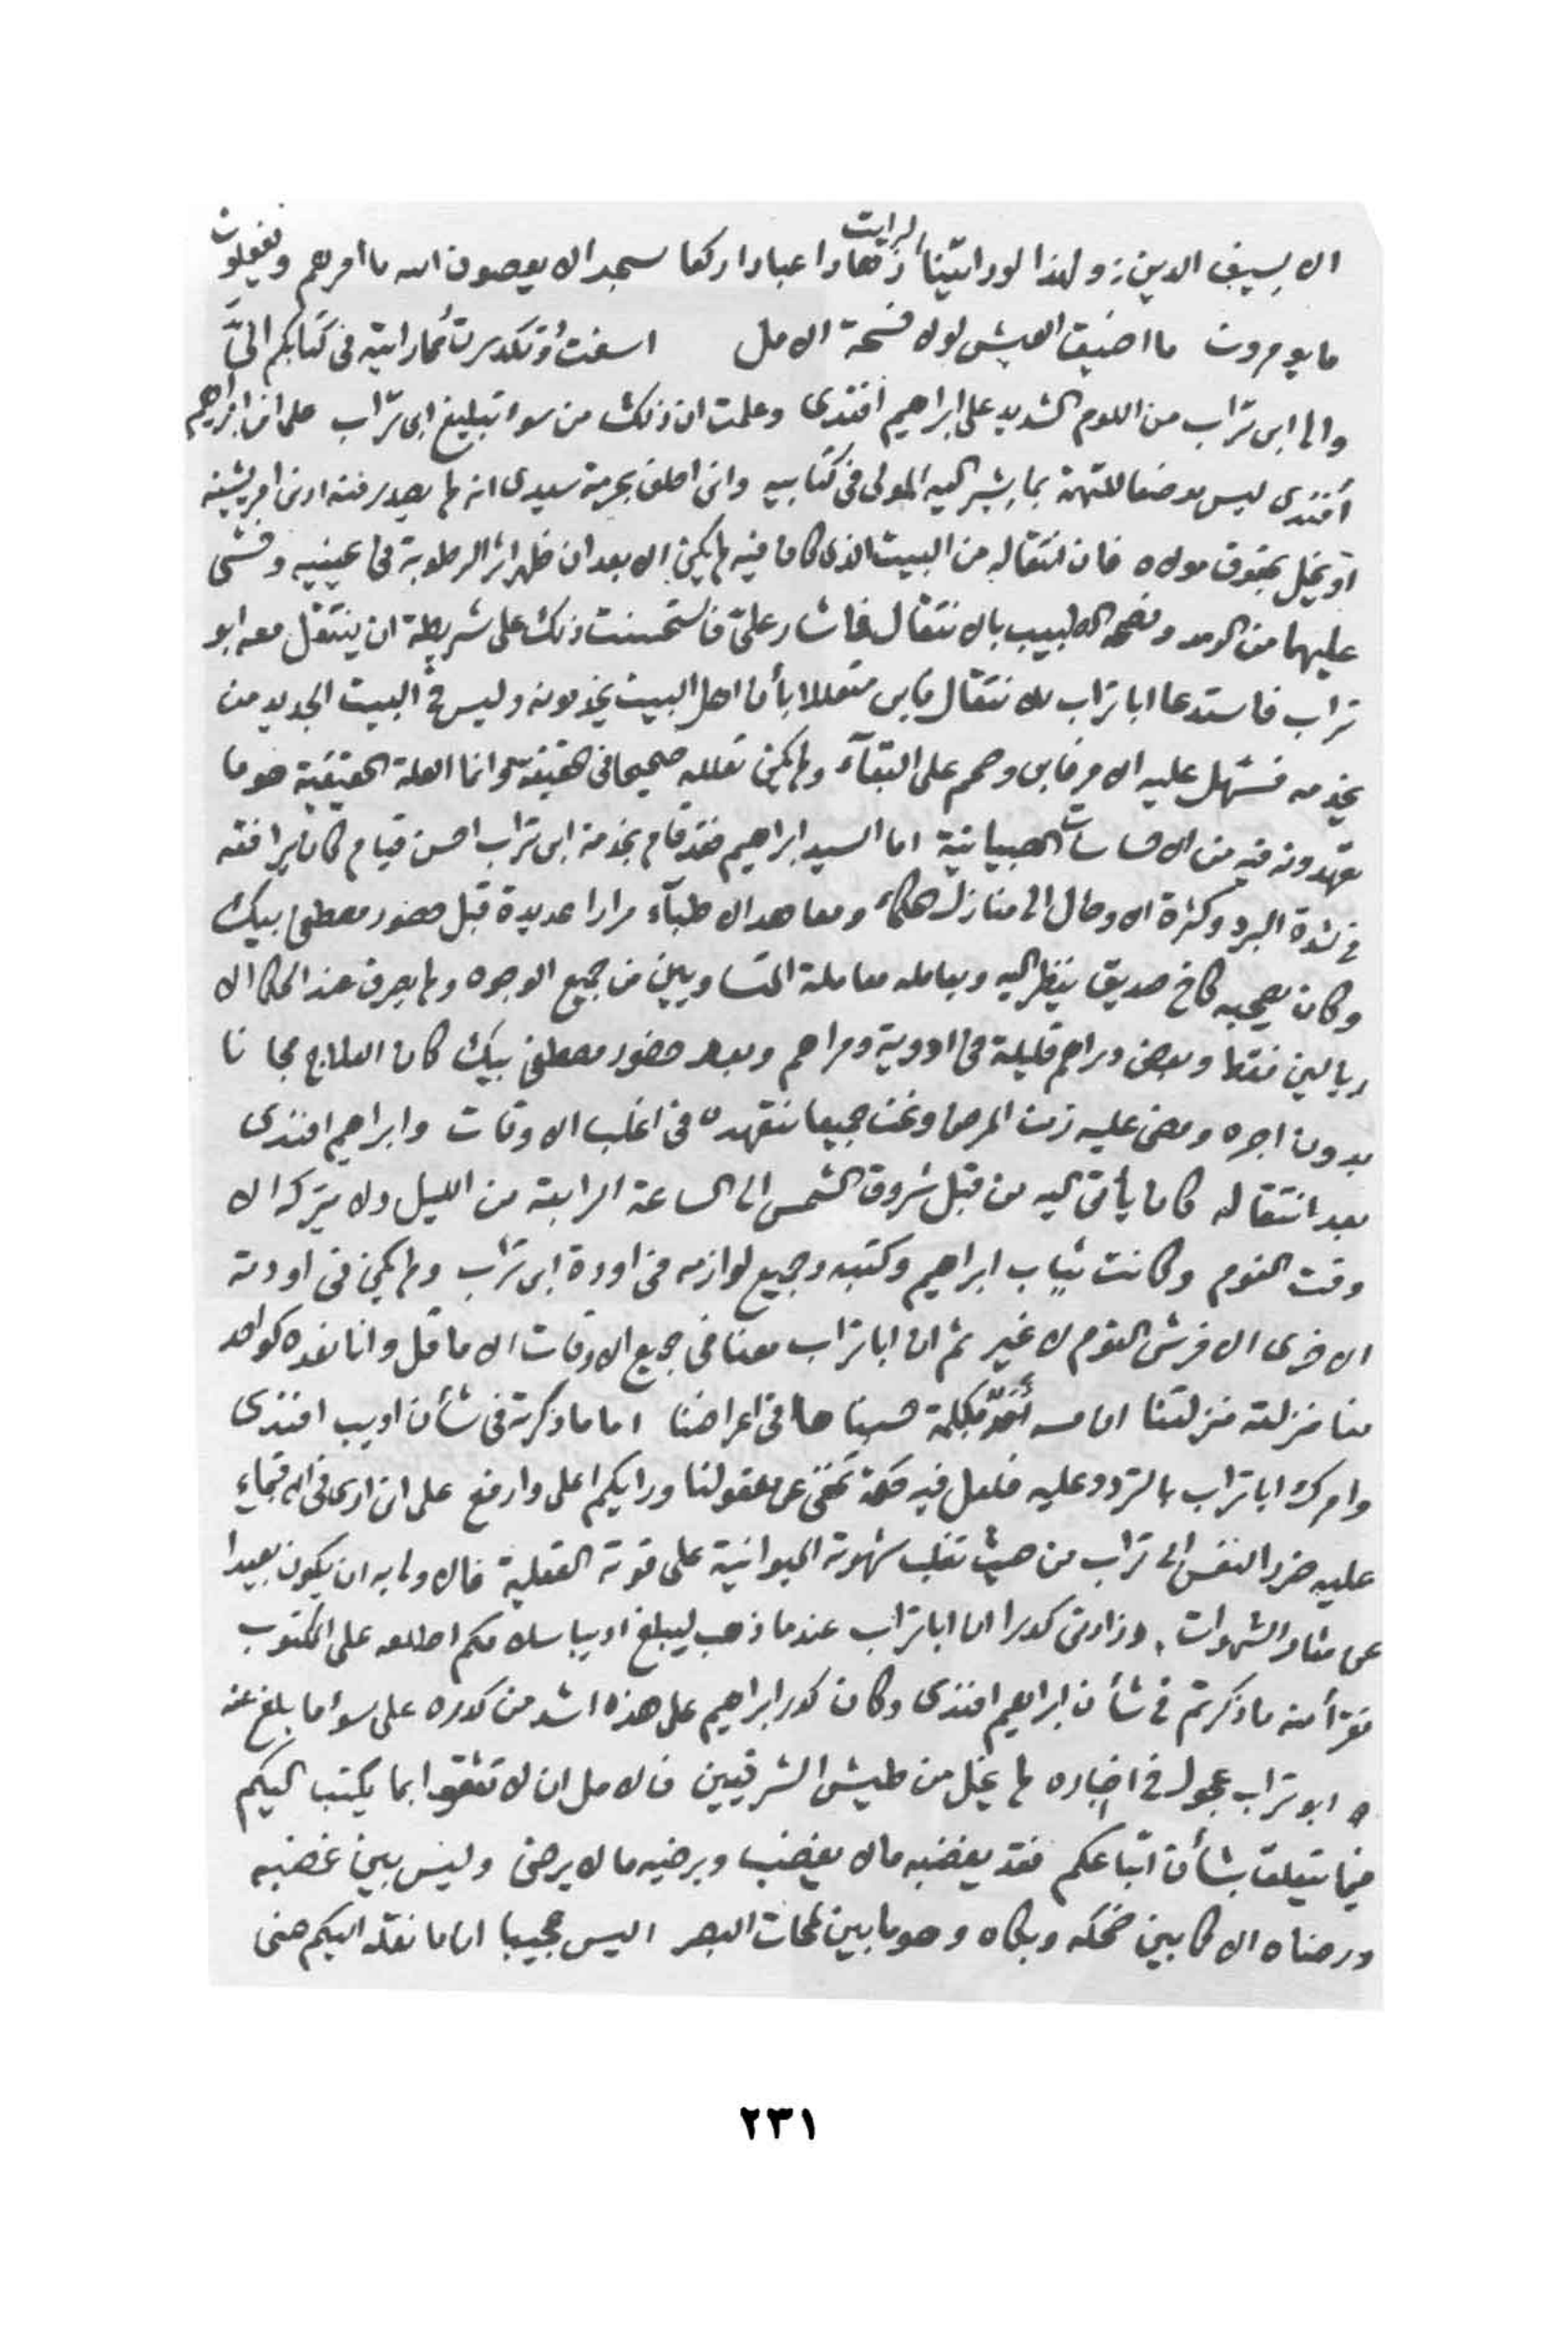 الا بسيف الدين زو لهذا لو راتينا لرايت زهادا عبادا ركعا سجدا لا يعصون الله ما امرهم ويفعلون
ما يومرون ما اضيق العيش لولا فسحة الامل اسفت وتكدرت مما رايته في كتابكم اليَّ
والى ابى تراب من اللوم الشديد على ابراهيم افندى وعلمت ان ذلك من سوا تبليغ ابى تراب على ان ابراهيم
أفندى ليس موضعا للتهمة بما يشير اليه المولى في كتابيه وانى احلف بحرمة سيدى انه لم يصدر منه ادنى امر يشينه
او يخل بحقوق مولاه فان انتقاله من البيت الذى كان فيه لم يكن الا بعد ان ظهر اثر الرطوبة فى عينيه وخشى
عليهما من الرمد ونصحه الطبيب بالانتقال فاشار علىّ فاستحسنت ذلك على شريطة ان ينتقل معه ابو
تراب فاستدعا ابا تراب للانتقال فابى متعللا بأن اهل البيت يخدمونه وليس في البيت الجديد من
يخدمه فسهل عليه الامر فابى وصمم على البقآء ولم يكن تعلله صحيحا فى الحقيقة وانما العلة الحقيقية هو ما
تعهدونه فيه من الاحساسات الصبيانية اما السيد ابراهيم فقد قام بخدمة ابى تراب احسن قيام كان يرافقه
في شدة البرد وكثرة الاوحال الى منازل الحكماء ومعاهد الاطبآء مرارا عديدة قبل حضور مصطفى بيك
وكان يصحبه كاخ صديق ينظر اليه ويعامله معاملة المتساويين من جميع الوجوه ولم يصرف عند الحكما الا
ريالين فقط وبعض دراهم قليلة فى ادوية ومراهم وبعد حضور مصطفى بيك كان العلاج مجانا
بدون اجره ومضى عليه زمن المرض ونحن جميعا نتعهده فى اغلب الاوقات وابراهيم افندى
بعد انتقاله كان يأتى اليه من قبل شروق الشمس الى الساعة الرابعة من الليل ولا يتركه الا
وقت النوم وكانت ثياب ابراهيم وكتبه وجميع لوازمه فى اودة ابى تراب ولم يكن فى اودته
الاخرى الا فرش النوم لا غير ثم ان ابا تراب معنا فى جميع الاوقات الا ما قل وانا نعده كواحد
منا منزلته منزلتنا ان مسه أحد بكلمة حسبناها فى اعراضنا اما ما ذكرته فى شأن اديب افندى
وامرك ابا تراب بالتردد عليه فلعل فيه حكمة تخفى عن عقولنا ورايكم اعلى وارفع على انى ارى فى اجتماع
عليه ضررا لنفس ابى تراب من حيث تغلب شهوته الحيوانية على قوته العقلية فالاولى به ان يكون بعيدا
عن مثار الشهوات. وزادنى كدرا ان ابا تراب عندما ذهب ليبلغ اديبا سلامكم اطلعه على المكتوب
فقرأ منه ما ذكرتم في شأن ابراهيم افندى وكان كدر ابراهيم على هذه اشد من كدره على سوا ما بلغ عنه
ابو تراب عجول في اخباره لم يخل من طيش الشرقيين فالامل ان لا تثقوا بما يكتب اليكم
فيما يتعلق بشأن اتباعكم فقد يغضبه مالا يغضب ويرضيه ما لا يرضى وليس بين غضبه
ورضاه الا كما بين ضحكه وبكاه وهو ما بين لمحات البصر اليس عجيبا ان ما نقله اليكم عنى
٢٣١